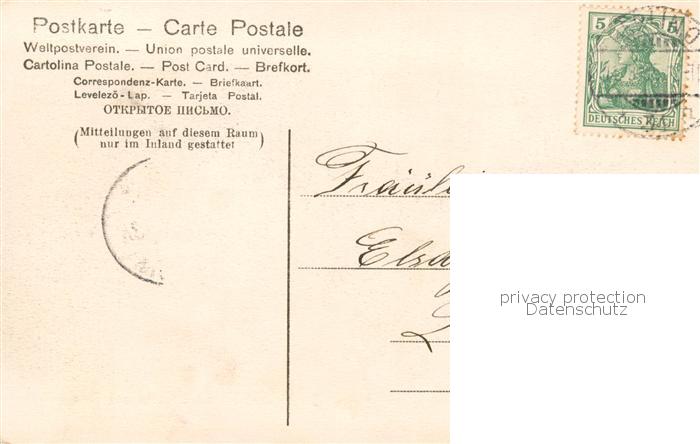 Postkarte – Carte Postale
Weltpostverein. — Union postale universelle.
Cartolina Postale. — Post Card. — Brefkort.
Correspondenz-Karte. — Briefkaart.
Levelező-Lap. — Tarjeta Postal.
ОТКРЫТОЕ ПИСЬМО.
(Mitteilungen auf diesem Raum
nur im Inland gestattet)
5 5
DEUTSCHES REICH
Fräulei
Elsa
privacy protection
Datenschutz